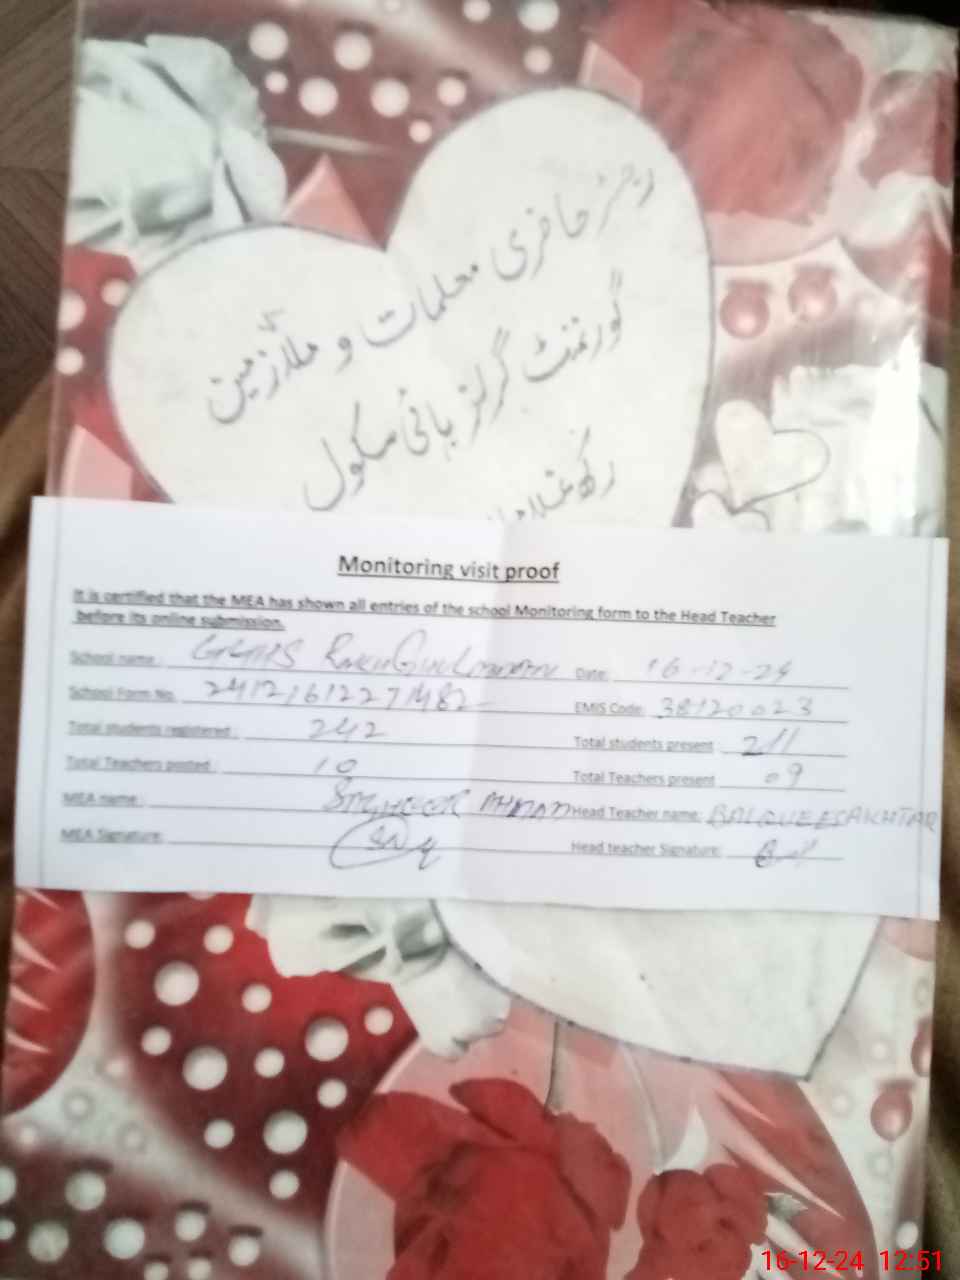 رجسٹر حاضری معلمات و ملازمین
گورنمنٹ گرلز ہائی سکول
رکھ غلاماں
Monitoring visit proof
It is certified that the MEA has shown all entries of the school Monitoring form to the Head Teacher
before its online submission.
School name: GGHS Rakh Ghulaman Date: 16-12-24
School Form No. 241216122271482 EMIS Code: 38120023
Total students registered: 242 Total students present 211
Total Teachers posted: 10 Total Teachers present 09
MEA name: AHMAD Head Teacher name: BALQUEES AKHTAR
MEA Signature: Head teacher Signature:
16-12-24 12:51